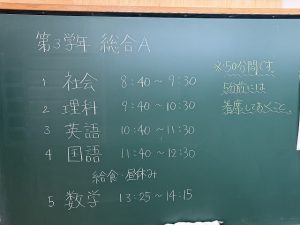 第3学年 総合A
1 社会 8:40～9:30
2 理科 9:40～10:30
3 英語 10:40～11:30
4 国語 11:40～12:30
給食・昼休み
5 数学 13:25～14:15
※50分間です
5分前には
着席しておくこと。